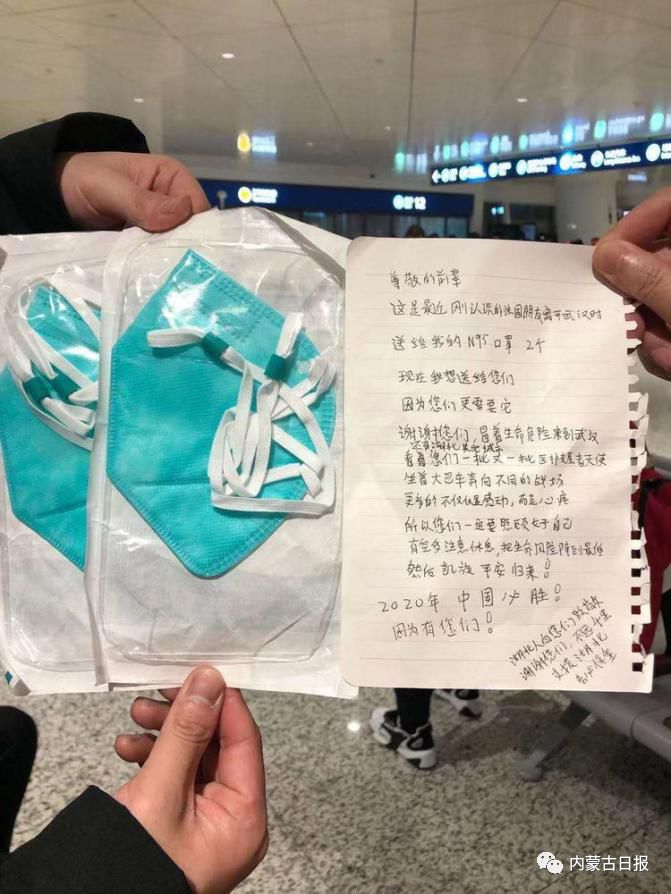 12
尊敬的前辈
这是最近刚认识的法国朋友离开武汉时
送给我的N95口罩2个
现在我想送给您们
因为您们更需要它
谢谢您们,冒着生命危险来到武汉
还有湖北其它城市
看着您们一批又一批医护天使
坐着大巴车奔向不同的战场
更多的不仅仅是感动,而是心疼
所以您们一定要照顾好自己
有空多注意休息,把生命风险降到最低
然后凯旋平安归来!
2020年 中国必胜!
因为有您们!
湖北人向您们致敬
谢谢您们,不远千里
支援湖北
内蒙古日报